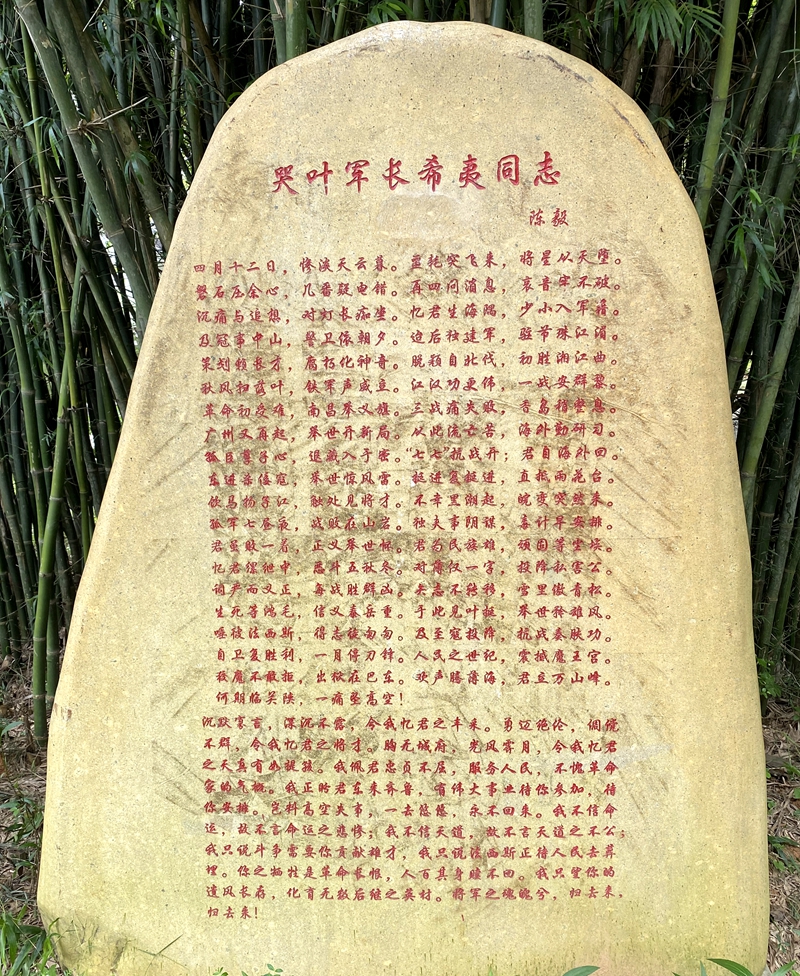 哭叶军长希夷同志
陈毅
四月十二日，惨淡天云暮。噩耗突飞来，将星从天堕。
磐石压余心，几番疑电错。再四问消息，哀音牢不破。
沉痛与追想，对灯长痴坐。忆君生海隅，少小入军籍。
及冠事中山，警卫依朝夕。迨后独建军，驻节珠江湄。
策划赖长才，腐朽化神奇。脱颖自北伐，初胜湘江曲。
秋风扫落叶，铁军声威立。江汉功更伟，一战安群黎。
革命初受难，南昌举义旗。三战痛失败，香岛稍憩息。
广州又再起，举世开新局。从此流亡苦，海外勤研习。
孤臣孽子心，退藏入于密。“七七”抗战开；君自海外回。
东进荡倭寇，举世惊风雷。挺进复挺进，直抵雨花台。
饮马扬子江，触处见将才。不幸里潮起，皖变突然来。
孤军七昼夜，战败在山岩。独夫事阴谋，毒计早安排。
君虽败一着，正义举世怀。君为民族雄，顽固等尘埃。
忆君缧绁中，恶斗五秋冬。对簿仅一字，投降私害公。
词严而义正，每战胜群凶。矢志不转移，雪里傲青松。
生死等鸿毛，信义泰岳重。于此见叶挺，举世钦雄风。
唾彼法西斯，得志徒匈匈。及至寇投降，抗战奏肤功。
自卫复胜利，一月停刃锋。人民之世纪，震撼魔王宫。
殺魔不敢拒，出狱在巴东。欢声腾薄海，君立万山峰。
何期临关陕，一痛坠高空！
沉默寡言，深沉不露，令我忆君之丰采。勇迈绝伦，倜傥
不群，令我忆君之将才。胸无城府，光风霁月，令我忆君
之天真有如孩孩。我佩君忠贞不屈，服务人民，不愧革命
家的气概。我正盼君东来齐鲁，有伟大事业待你参加，待
你安排。岂料高空失事，一去悠悠，永不回来。我不信命
运，故不言命运之悲惨；我不信天道，故不言天道之不公；
我只说斗争需要你贡献雄才，我只说法西斯正待人民去葬
埋。你之牺牲是革命长恨，人百其身赎不回。我只望你的
遗风长存，化育无数后继之英材。将军之魂魄兮，归去来，
归去来！